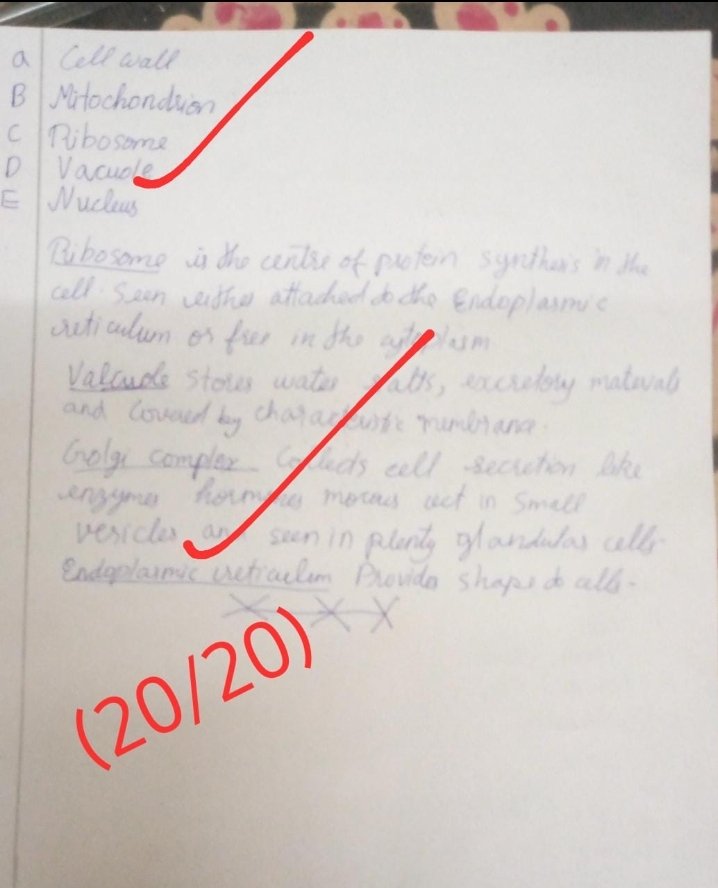 a Cell wall
B Mitochondrion
C Ribosome
D Vacuole
E Nucleus
Ribosome is the centre of protein synthesis in the
cell. Seen either attached to the Endoplasmic
reticulum or free in the cytoplasm
Valcuole Stores water salts, excretory materials
and Covered by characteristic membrane.
Golgi complex Collects cell secretion like
enzymes hormones ect in Small
vesicles and seen in plenty glandular cells
Endoplasmic reticulum Provides shape to cells.
(20/20)